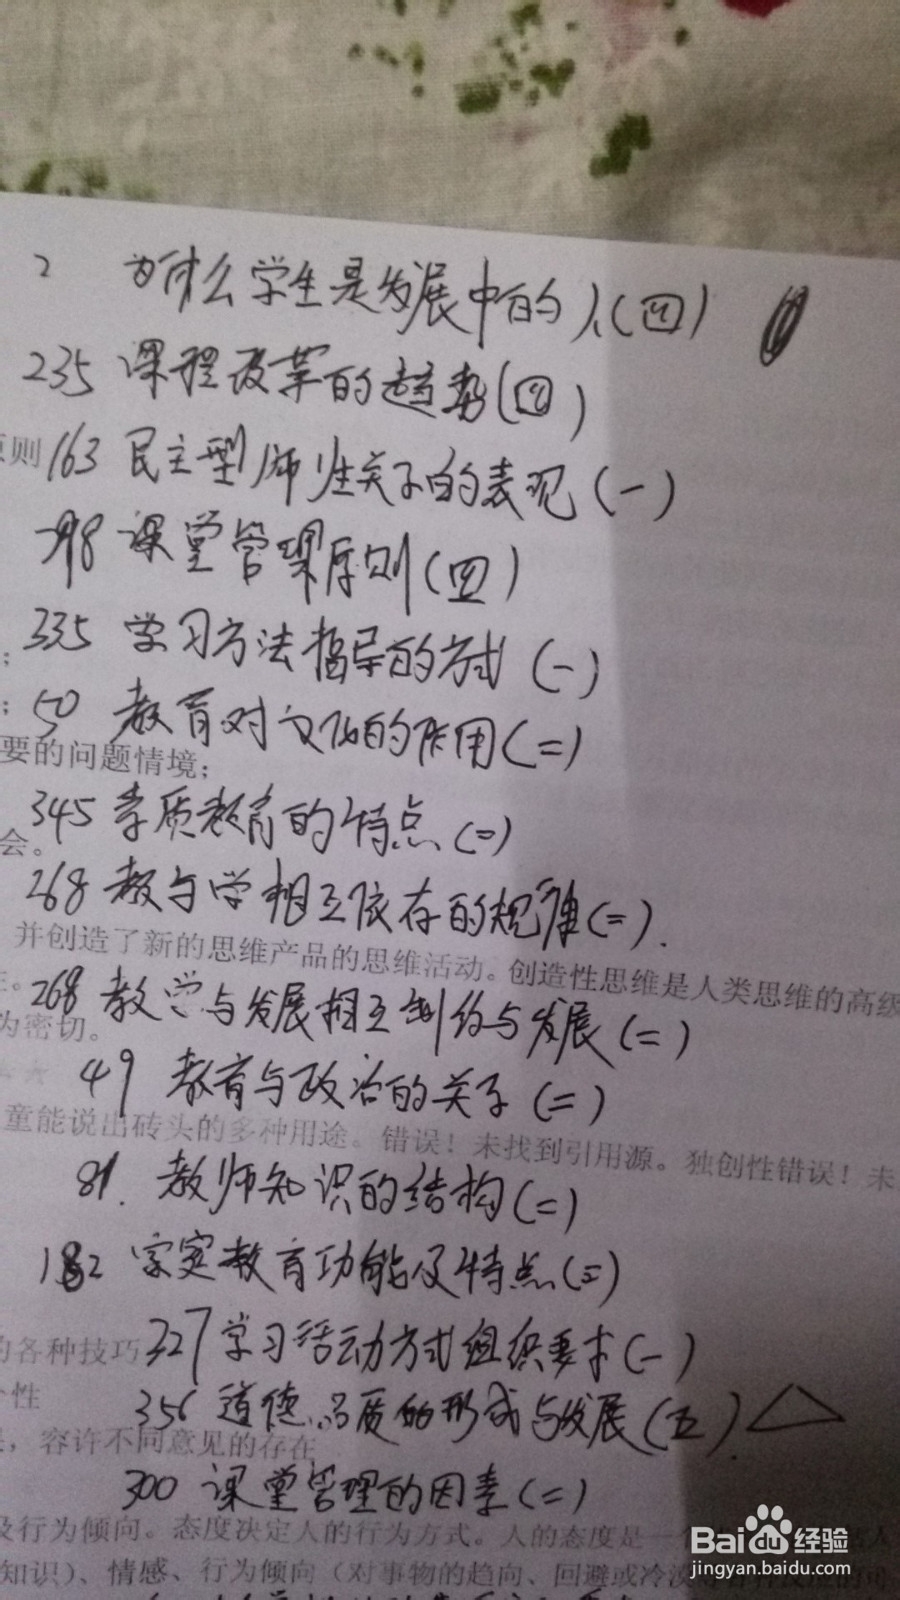 2 为什么学生是发展中的人(四)
235 课程改革的趋势(四)
原则 163 民主型师生关系的表现(一)
298 课堂管理原则(四)
335 学习方法指导的方式(一)
; 50 教育对文化的作用(二)
要的问题情境;
345 素质教育的特点(二)
会。
268 教与学相互依存的规律(二).
并创造了新的思维产品的思维活动。创造性思维是人类思维的高级
268 教学与发展相互制约与发展(二)
为密切。
49 教育与政治的关系(二)
童能说出砖头的多种用途。错误!未找到引用源。独创性错误!未
81. 教师知识的结构(二)
182 家庭教育功能及特点(二)
的各种技巧 327 学习活动方式组织要求(一)
个性
356 道德品质的形成与发展(五)
,容许不同意见的存在
300 课堂管理的因素(二)
及行为倾向。态度决定人的行为方式。人的态度是一
知识)、情感、行为倾向(对事物的趋向、回避或冷漠
Baidu经验
jingyan.baidu.com